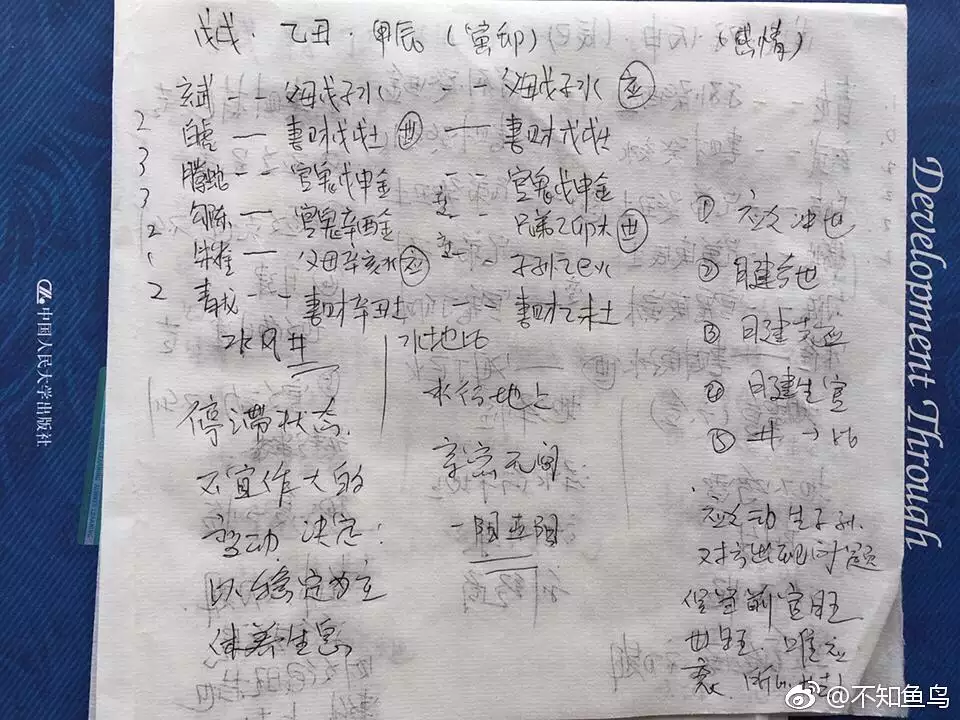 戊戌·乙丑·甲辰(寅卯) (感情)
玄武 -- 父母戊子水 -- 父母戊子水 应
2 白虎 — 妻财戊戌土 世 — 妻财戊戌土
3 腾蛇 -- 官鬼戊申金 -- 官鬼戊申金
3 勾陈 — 官鬼辛酉金 -- 兄弟乙卯木 世
2 朱雀 — 父母辛亥水 应 -- 子孙乙巳火
2 青龙 -- 妻财辛丑土 妻财乙未土
水风井
水地比
停滞状态
不宜作大的
变动 决定:
以稳定为主
休养生息
水行地上
亲密无间
一阳五阴
① 应爻冲世
② 日建合世
③ 日建克应
④ 日建生官
⑤ 井→比
应爻动生子孙
对方出现问题
官旺
世旺 唯应
衰
Development Through
中国人民大学出版社
@不知鱼鸟